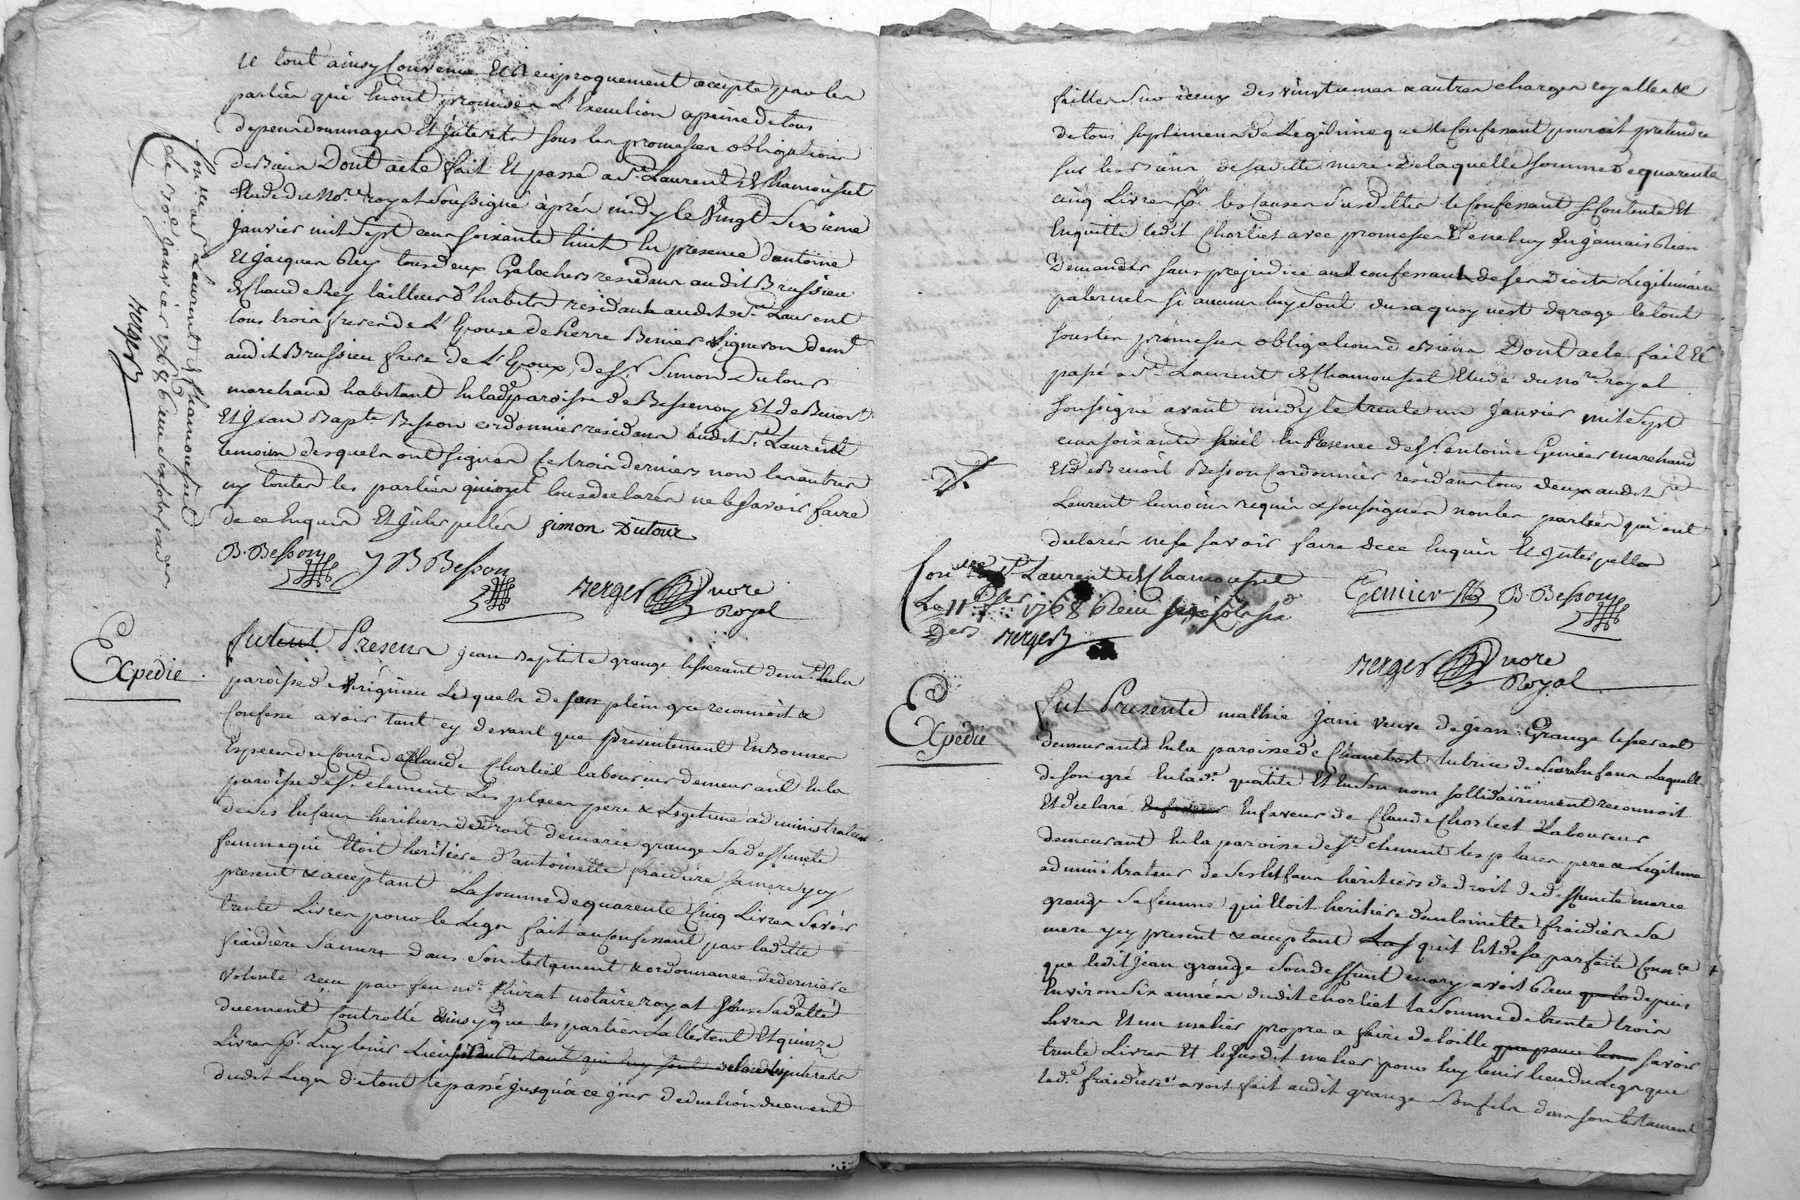 Le tout ainsy Convenu et Reciproquement accepté par les
parties qui en ont promis l'Execution a peine de tous
depens dommages et Interets sous les promesses obligations
de Biens Dont acte fait et passé a St. Laurent de Chamousset
Etude du No.re royal soussigné après midy le vingt sixieme
janvier mil sept cens soixante huit en presence d'antoine
et jacques Rey tous deux Galochers residans audit Brussieu
de Claude Rey tailleur d'habits residant audit St. Laurent
tous trois freres de l'Epouse de pierre Benier vigneron dem.t
audit Brussieu frere de l'Epoux, de Sr. Simon Dutour
marchand habitant en lad. paroisse de Bessenay et de Benoit
et jean Bapt.e Besson cordonniers residans audit St. Laurent
temoins desquels ont signés les trois derniers non les autres
ny toutes les parties qui ont tous declarés ne le savoir faire
de ce Enquis et Interpellés Simon Dutour
B. Besson J B Besson
Berger nore
Royal
Con.lé a St. Laurent de Chamousset
le 30e janvier 1768 Reçu
Berger
Expedie
Fut Present jean Baptiste grange tisserant dem.t en la
paroisse de virigneu Lequel de son plein gré reconnoit &
Confesse avoir tant cy devant que Presentement En Bonnes
Especes du Cours de Claude Chorliet laboureur demeurant en la
paroisse de St. clement Les places pere & Legitime administrateur
de ses Enfans heritiers de droit de marie grange sa deffunte
femme qui Etoit heritiere d'antoinette fraidiere sa mere ycy
present & acceptant La somme de quarente Cinq Livres savoir
trente Livres pour le Legs fait au Confessant par ladite
fraidière sa mere dans son testament & ordonnance de derniere
volonté recu par feu me. notaire royal sous sa datte
duement Controllé ainsy que les parties L'attestent et quinze
Livres pr. Luy tenir Lieu des interets
dudit Legs de tout le passé jusqu'à ce jour deduction duement
faittes sur iceux des vingtiemes & autres charges royalles &
de tous suplemens de Légitime que le Confessant pouroit pretendre
sur les Biens de sadite mere de laquelle somme de quarente
cinq Livres pr. les causes susdittes le Confessant se Contente et
Enquitte ledit Chorliet avec promesses de ne luy En jamais rien
Demander sans prejudice au confessant de ses droits Légitimaires
paternels si aucuns luy sont dus a quoy n'est derogé le tout
sous les promesses obligations de Biens Dont acte fait et
passé a St. Laurent de Chamousset Etude du No.re royal
soussigné avant midy le trente un janvier mil sept
cens soixante huit en Presence de Sr. antoine Genier marchand
et de Benoit Besson Cordonnier residans tous deux audit St.
Laurent temoins requis & soussignés non les parties qui ont
declarés ne se savoir faire de ce Enquis et Interpellés
Con.lé a St. Laurent de Chamousset
Le 11e 1768 Reçu
Berger
Genier B. Besson
Berger nore
Royal
Expedie
Fut Presente mathie jani veuve de jean Grange tisserant
demeurante En la paroisse de Chambost tutrice de Leurs Enfans Laquelle
de son gré En lad. qualité et En son nom sollidairement reconnoit
et declaré En faveur de Claude Chorliet Laboureur
demeurant En la paroisse de St. clement les places pere & Légitime
administrateur de ses Enfans héritiers de droit de deffuncte marie
grange sa femme qui Etoit heritiere d'antoinette fraidiere sa
mere ycy present & acceptant qu'il Est de sa parfaite Conn.ce
que ledit jean grange son deffunt mary avoit reçu depuis
Environ six années dudit Chorliet la somme de trente trois
Livres et un metier propre a faire de toille savoir
trente Livres et le susdit metier pour luy tenir lieu du Legs que
lad. fraidiere avoit fait audit grange son fils dans son testament